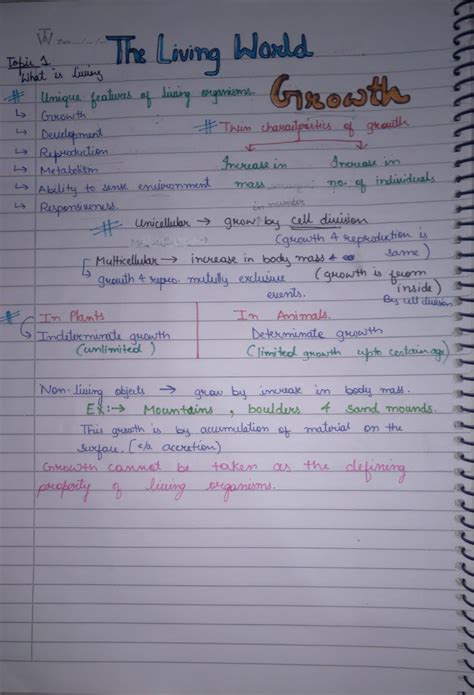 The Living World
Topic 1
What is living
# Unique features of living organisms.
Growth
↳ Growth
# Twin charaitpristics of growth
↳ Development
↳ Reproduction
Increase in mass
Increase in no. of individuals
↳ Metabolism
↳ Ability to sense environment
↳ Responsiveness.
in number
# Unicellular → grow by cell division
(growth & reproduction is same)
Multicellular → increase in body mass &
(growth is from inside)
By cell division
↳ growth & repro. mutully exclusive events.
# In Plants
In Animals.
Indeterminate growth
Determinate growth
(unlimited)
(limited growth upto certain age)
Non-living objects → grow by increase in body mass.
EX:→ Mountains, boulders & sand mounds.
This growth is by accumulation of material on the
surface. [c/a accretion)
Growth cannot be taken as the defining
property of living organisms.